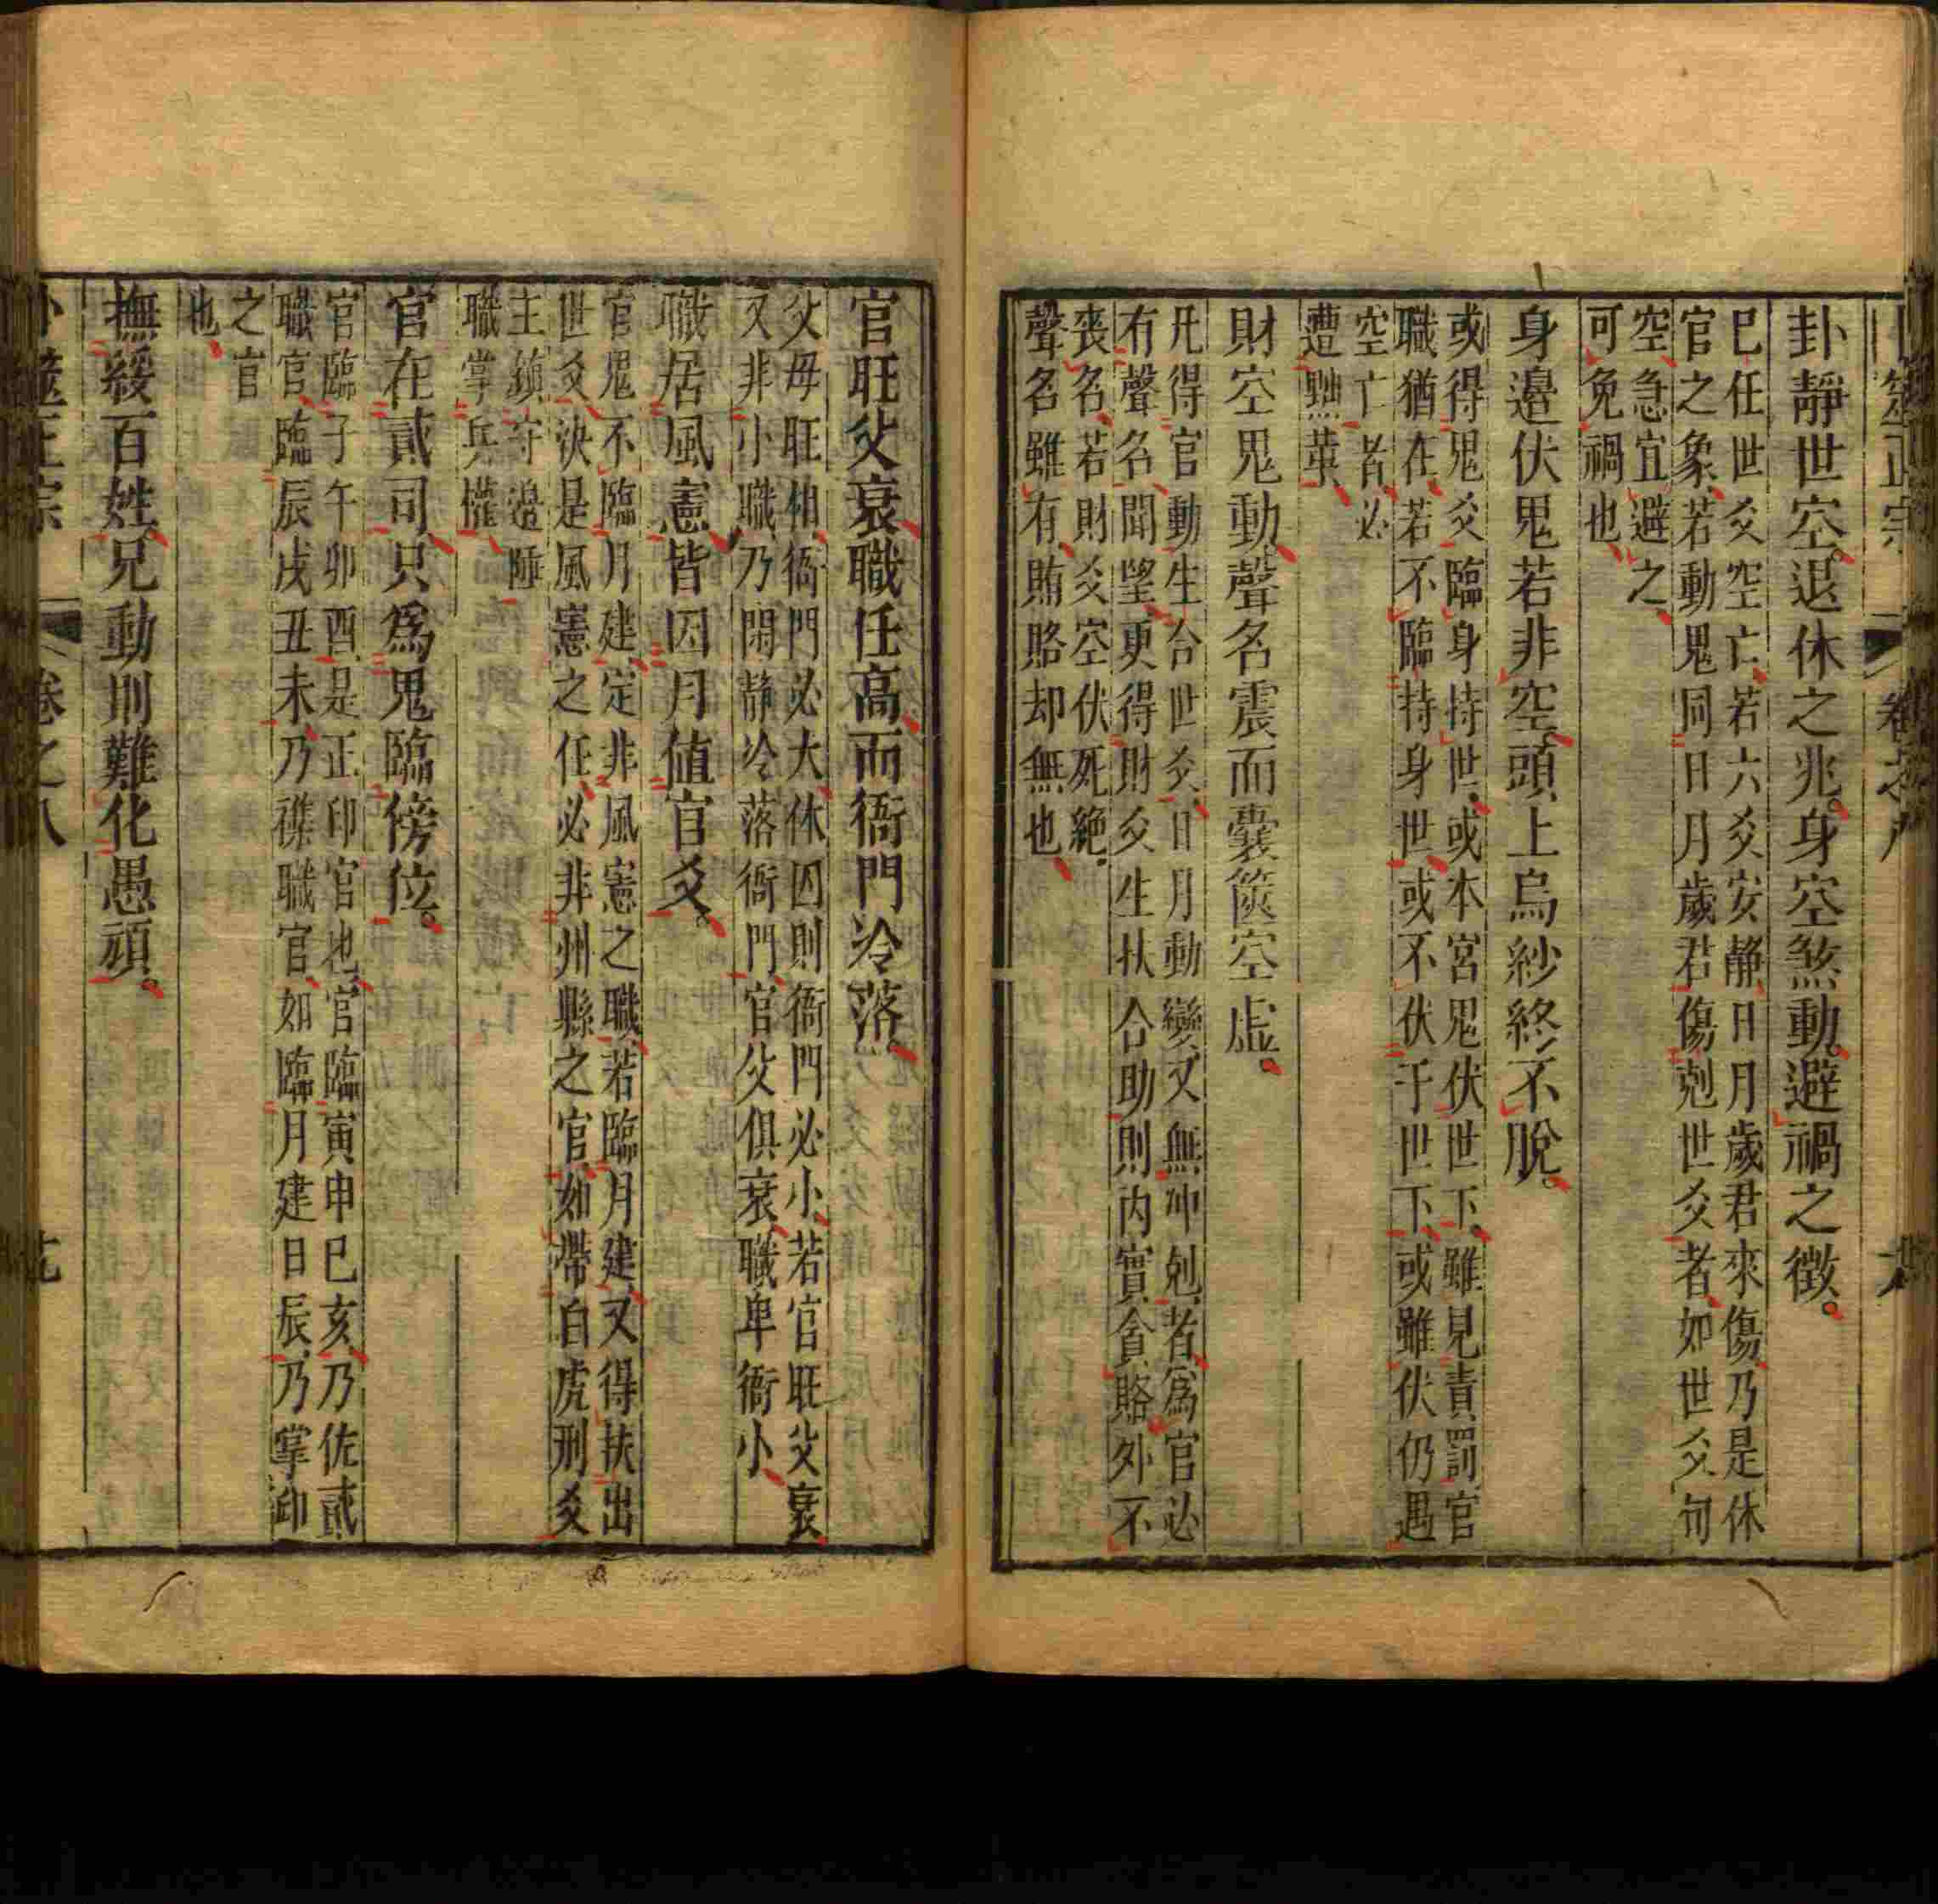 卜筮正宗 卷之八
卦靜世空退休之兆身空煞動避禍之徵
已任世爻空亡若六爻安靜日月歲君來傷乃是休
官之象若動鬼同日月歲君傷剋世爻者如世爻旬
空急宜避之
可免禍也
身邉伏鬼若非空頭上烏紗終不脫
或得鬼爻臨身持世或本宮鬼伏世下雖見責罰官
職猶在若不臨持身世或不伏于世下或雖伏仍遇
空亡者必
遭黜革
財空鬼動聲名震而囊篋空虛
凡得官動生合世爻日月動變又無冲剋者爲官必
有聲名聞望更得財爻生扶合助則内實貪賂外不
喪名若財爻空伏死絶
聲名雖有賄賂却無也
官旺父衰職任高而衙門冷落
父母旺相衙門必大休囚則衙門必小若官旺父衰
又非小職乃閑靜冷落衙門官父俱衰職卑衙小
職居風憲皆因月值官爻
官鬼不臨月建定非風憲之職若臨月建又得扶出
世爻決是風憲之任必非州縣之官如帶白虎刑爻
主鎮守邉陲
職掌兵權
官在貳司只爲鬼臨傍位
官臨子午卯酉是正印官也官臨寅申巳亥乃佐貳
職官臨辰戌丑未乃襍職官如臨月建日辰乃掌印
之官
也
撫綏百姓兄動則難化愚頑
卜筮正宗 卷之八